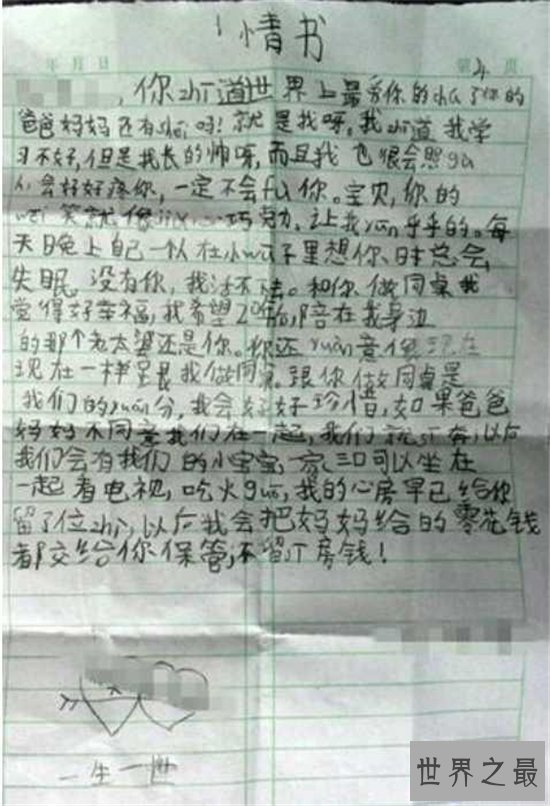 情书
年 月 日 第 4 页
,你zhī道世界上最爱你的chú了你的
爸爸妈妈还有shéi吗!就是我呀,我zhī道我学
习不好,但是我长的帅呀,而且我也很会照gù
人会好好疼你,一定不会fù你。宝贝,你的
笑就像巧克力,让我ruǎn乎乎的。每
天晚上自己一个人在小wū子里想你、时总会
失眠。没有你,我活不下去。和你做同桌我
觉得好幸福,我希望20年后,陪在我身边
的那个老太婆还是你。你还yuàn意像现在
现在一样呈跟我做同桌。跟你做同桌是
我们的yuán分,我会好好珍惜,如果爸爸
妈妈不同意我们在一起,我们就私奔,以后
我们会有我们的小宝宝,一家三口可以坐在
一起看电视,吃火guō,我的心房早已给你
留了位zhì,以后我会把妈妈给的零花钱
都交给你保管,不留私房钱!
一生一世
世界之最